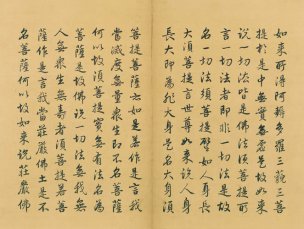 如來所得阿耨多羅三藐三菩
提於是中無實無虛是故如來
說一切法皆是佛法須菩提所
言一切法者即非一切法是故
名一切法須菩提譬如人身長
大須菩提言世尊如來說人身
長大即為非大身是名大身須
菩提菩薩亦如是若作是言我
當滅度無量眾生即不名菩薩
何以故須菩提實無有法名為
菩薩是故佛說一切法無我無
人無眾生無壽者須菩提若菩
薩作是言我當莊嚴佛土是不
名菩薩何以故如來說莊嚴佛